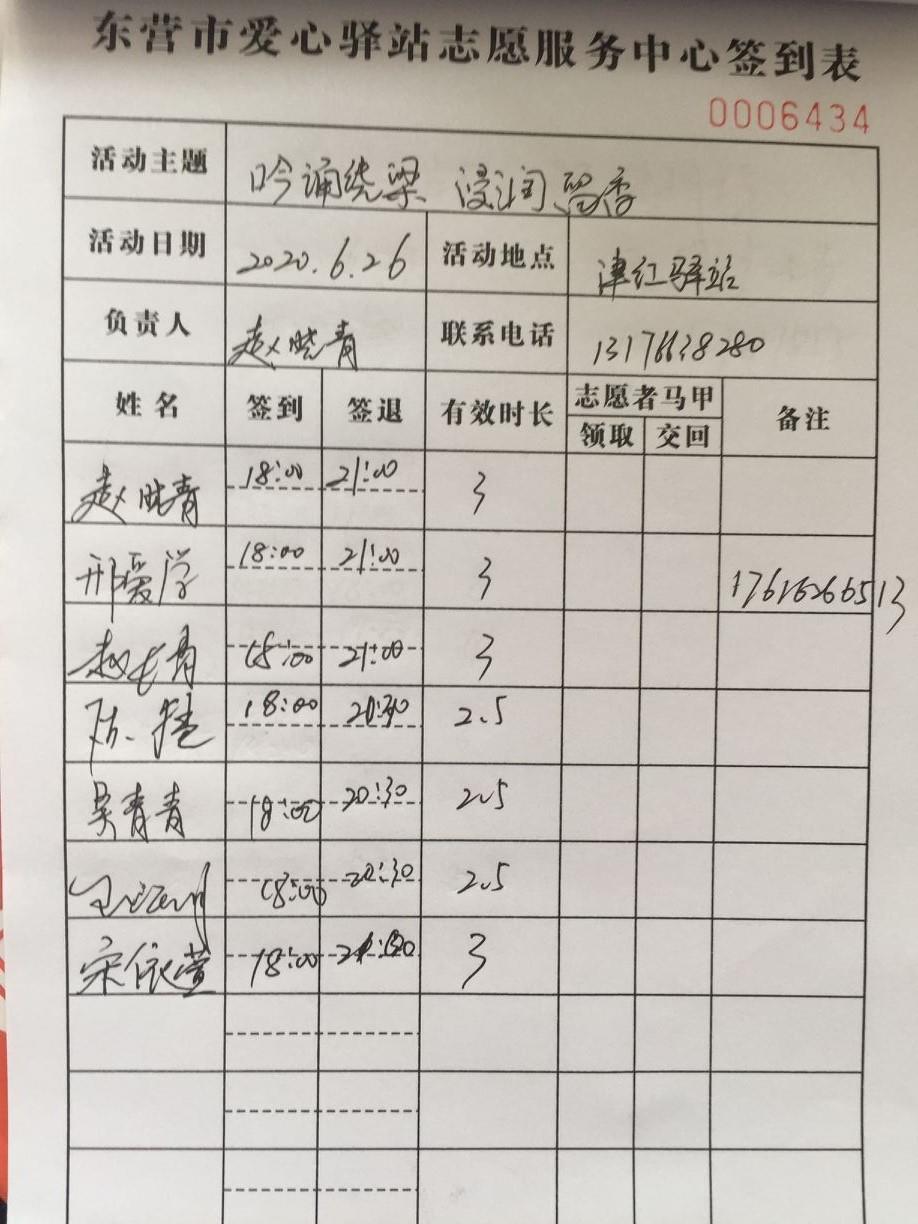 东营市爱心驿站志愿服务中心签到表
0006434
活动主题 吟诵绕梁 浸润留香
活动日期 2020.6.26 活动地点 津红驿站
负责人 赵晓青 联系电话 13176638280
姓名 签到 签退 有效时长 志愿者马甲 备注
领取 交回
赵晓青 18:00 21:00 3
邢爱学 18:00 21:00 3 17616266513
赵长青 18:00 21:00 3
18:00 20:30 2.5
吴青青 18:00 20:30 2.5
18:00 20:30 2.5
宋依萱 18:00 21:00 3